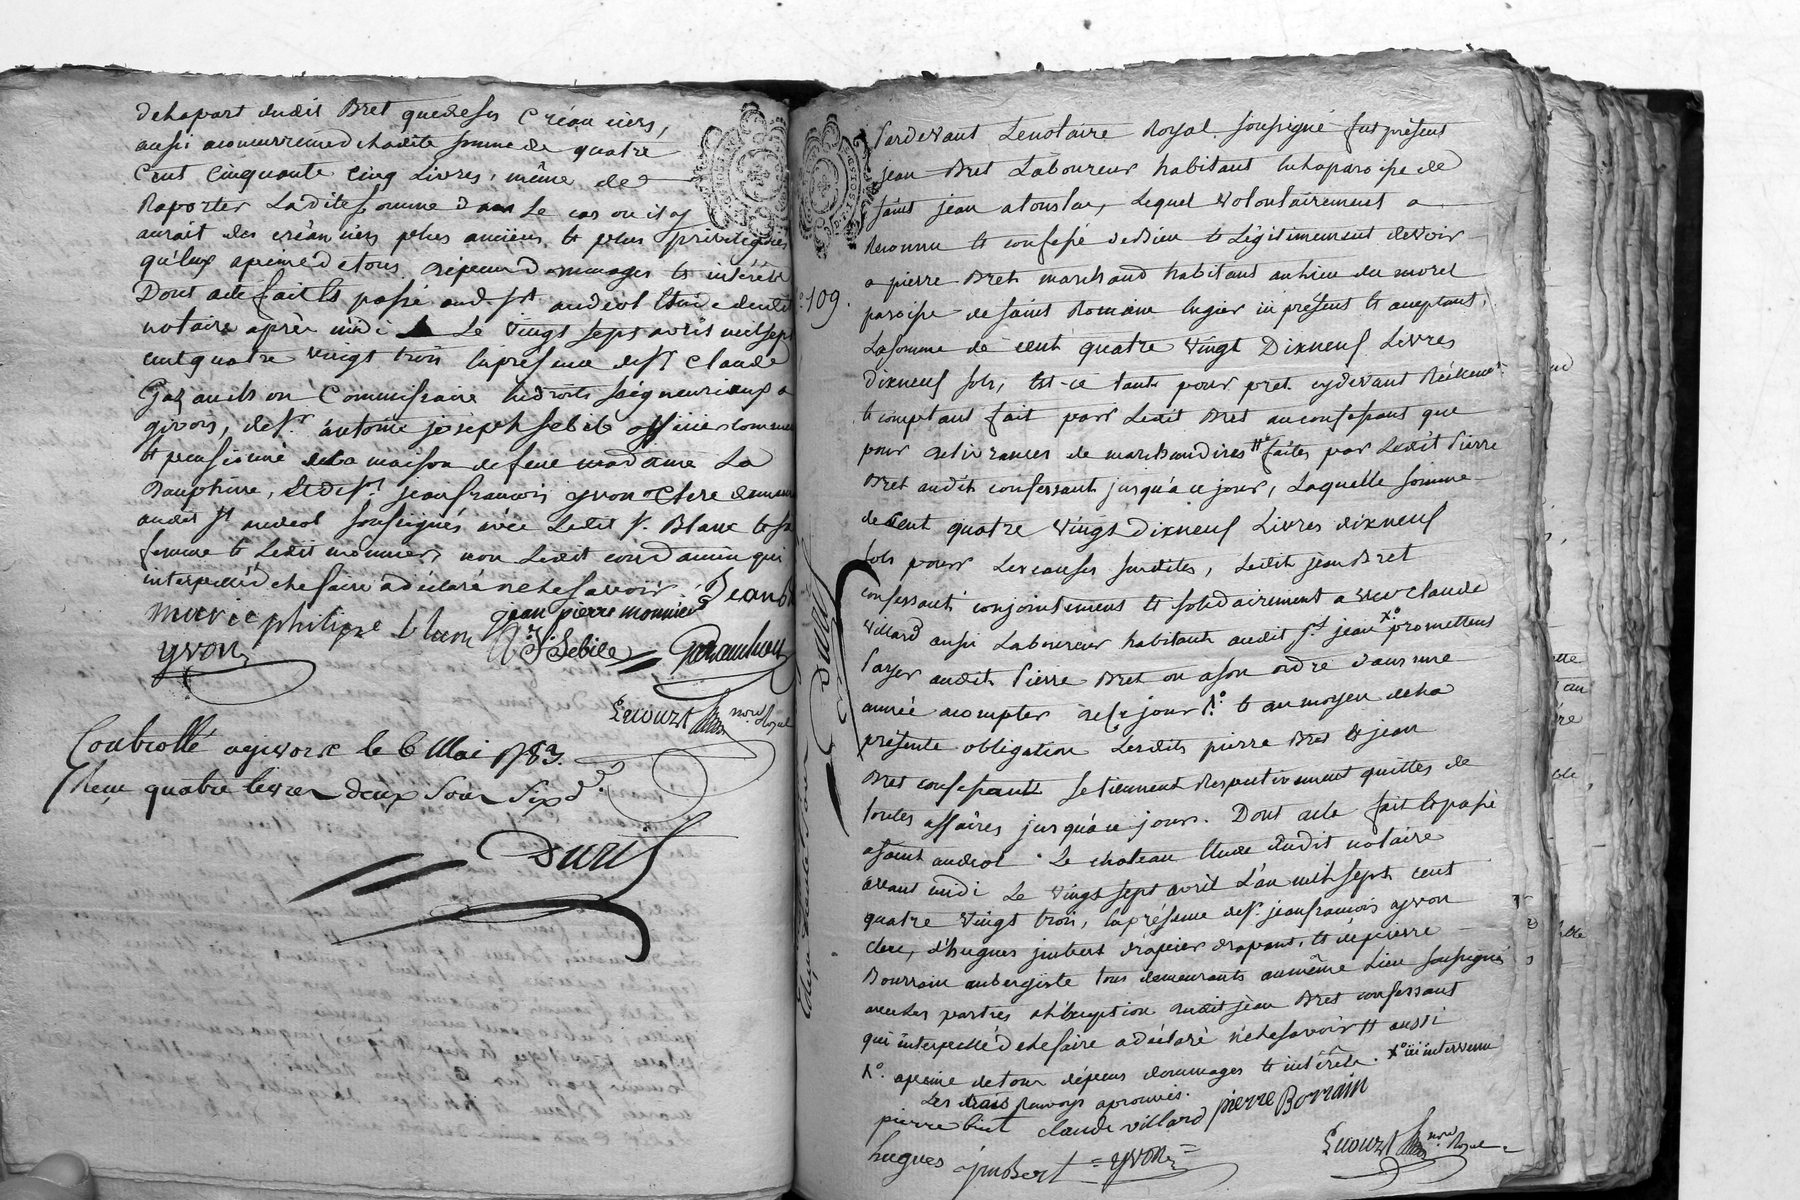 de la part dudit Bret que de ses créanciers,
aussi aconcurrence de ladite somme de quatre
Cent Cinquante Cinq Livres, même de
Raporter Ladite somme dans Le cas ou il y
aurait des créanciers plus anciens et plus privilegiés
qu'eux apeine de tous dépens Dommages et intérêts
Dont acte fait et passé aud. St andeol Etude dudit
notaire après midi Le vingt sept avril mil sept
cent quatre vingt trois en présence de Sr Claude
Commissaire en droits seigneuriaux a
givors, de Sr antoine joseph Sebile officier
et pensionné de la maison de feue madame La
Dauphine, et de Sr jean francois yvon Clerc
audit St andeol soussignés avec Ledit Sr Blanc
femme et Ledit monnier, non Ledit condamin qui
interpellé de le faire a déclaré ne le savoir.
marie philipe blanc jean pierre monnier
yvon Sebile
Lecourt nore Royal
Controllé agivors le 6 Mai 1783.
Reçu quatre livres deux sous six d.
109.
Pardevant Le notaire Royal soussigné fut présent
jean Bret Laboureur habitant en la paroisse de
saint jean atouslas, Lequel volontairement a
Reconnu et confessé devoir et Légitimement devoir
a pierre Bret marchand habitant au lieu du morel
paroisse de saint Romain en gier ici présent et aceptant,
La somme de cent quatre vingt Dixneuf Livres
Dixneuf sols, Est-ce tant pour pret cydevant Réellemt
et comptant fait par Ledit Bret au confessant que
pour délivrances de marchandises # faites par Ledit Pierre
Bret audit confessant jusqu'à ce jour, Laquelle somme
de Cent quatre vingt Dixneuf Livres dixneuf
sols pour Les causes susdites, Ledit jean Bret
confessant conjointement et solidairement avec claude
Villard aussi Laboureur habitant audit St jean Xo promettent
Payer audit Pierre Bret ou a son ordre dans une
année acompter de ce jour Xo. et au moyen de la
présente obligation Lesdits pierre Bret et jean
Bret confessant se tiennent Respectivement quittes de
toutes affaires jusqu'à ce jour. Dont acte fait et passé
a saint andeol Le chateau Etude dudit notaire
avant midi Le vingt sept avril L'an mil sept cent
quatre vingt trois, en présence de Sr jean francois yvon
clerc, d'hugues jmbert drapier drapant, et de pierre
Bourrain aubergiste tous demeurants au même Lieu soussignés
avec les parties a l'exception dudit jean Bret confessant
qui interpellé de le faire a déclaré ne le savoir # aussi
Xo. apeine de tous dépens dommages et intérêts. Xo ici intervenu
Les trois Renvoys aprouvés.
pierre bret claude villard pierre Borrain
hugues jmbert yvon
Lecourt nore Royal